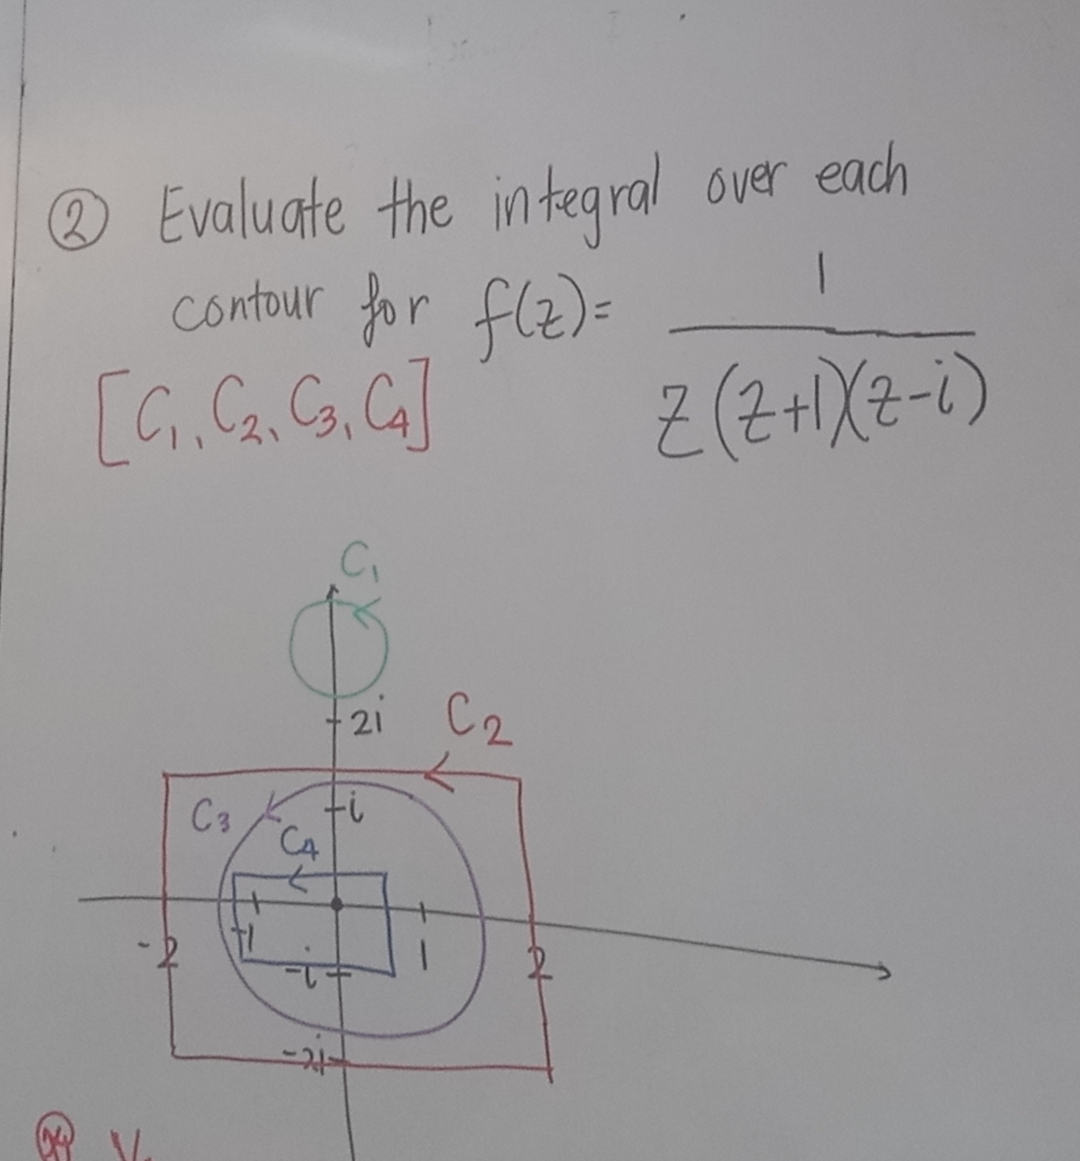 ② Evaluate the integral over each
contour for f(z)= 1
[C₁, C₂, C₃, C₄] z(z+1)(z-i)
C₁
2i C₂
C₃ i
C₄
-1 1
-2 -i 2
-2i